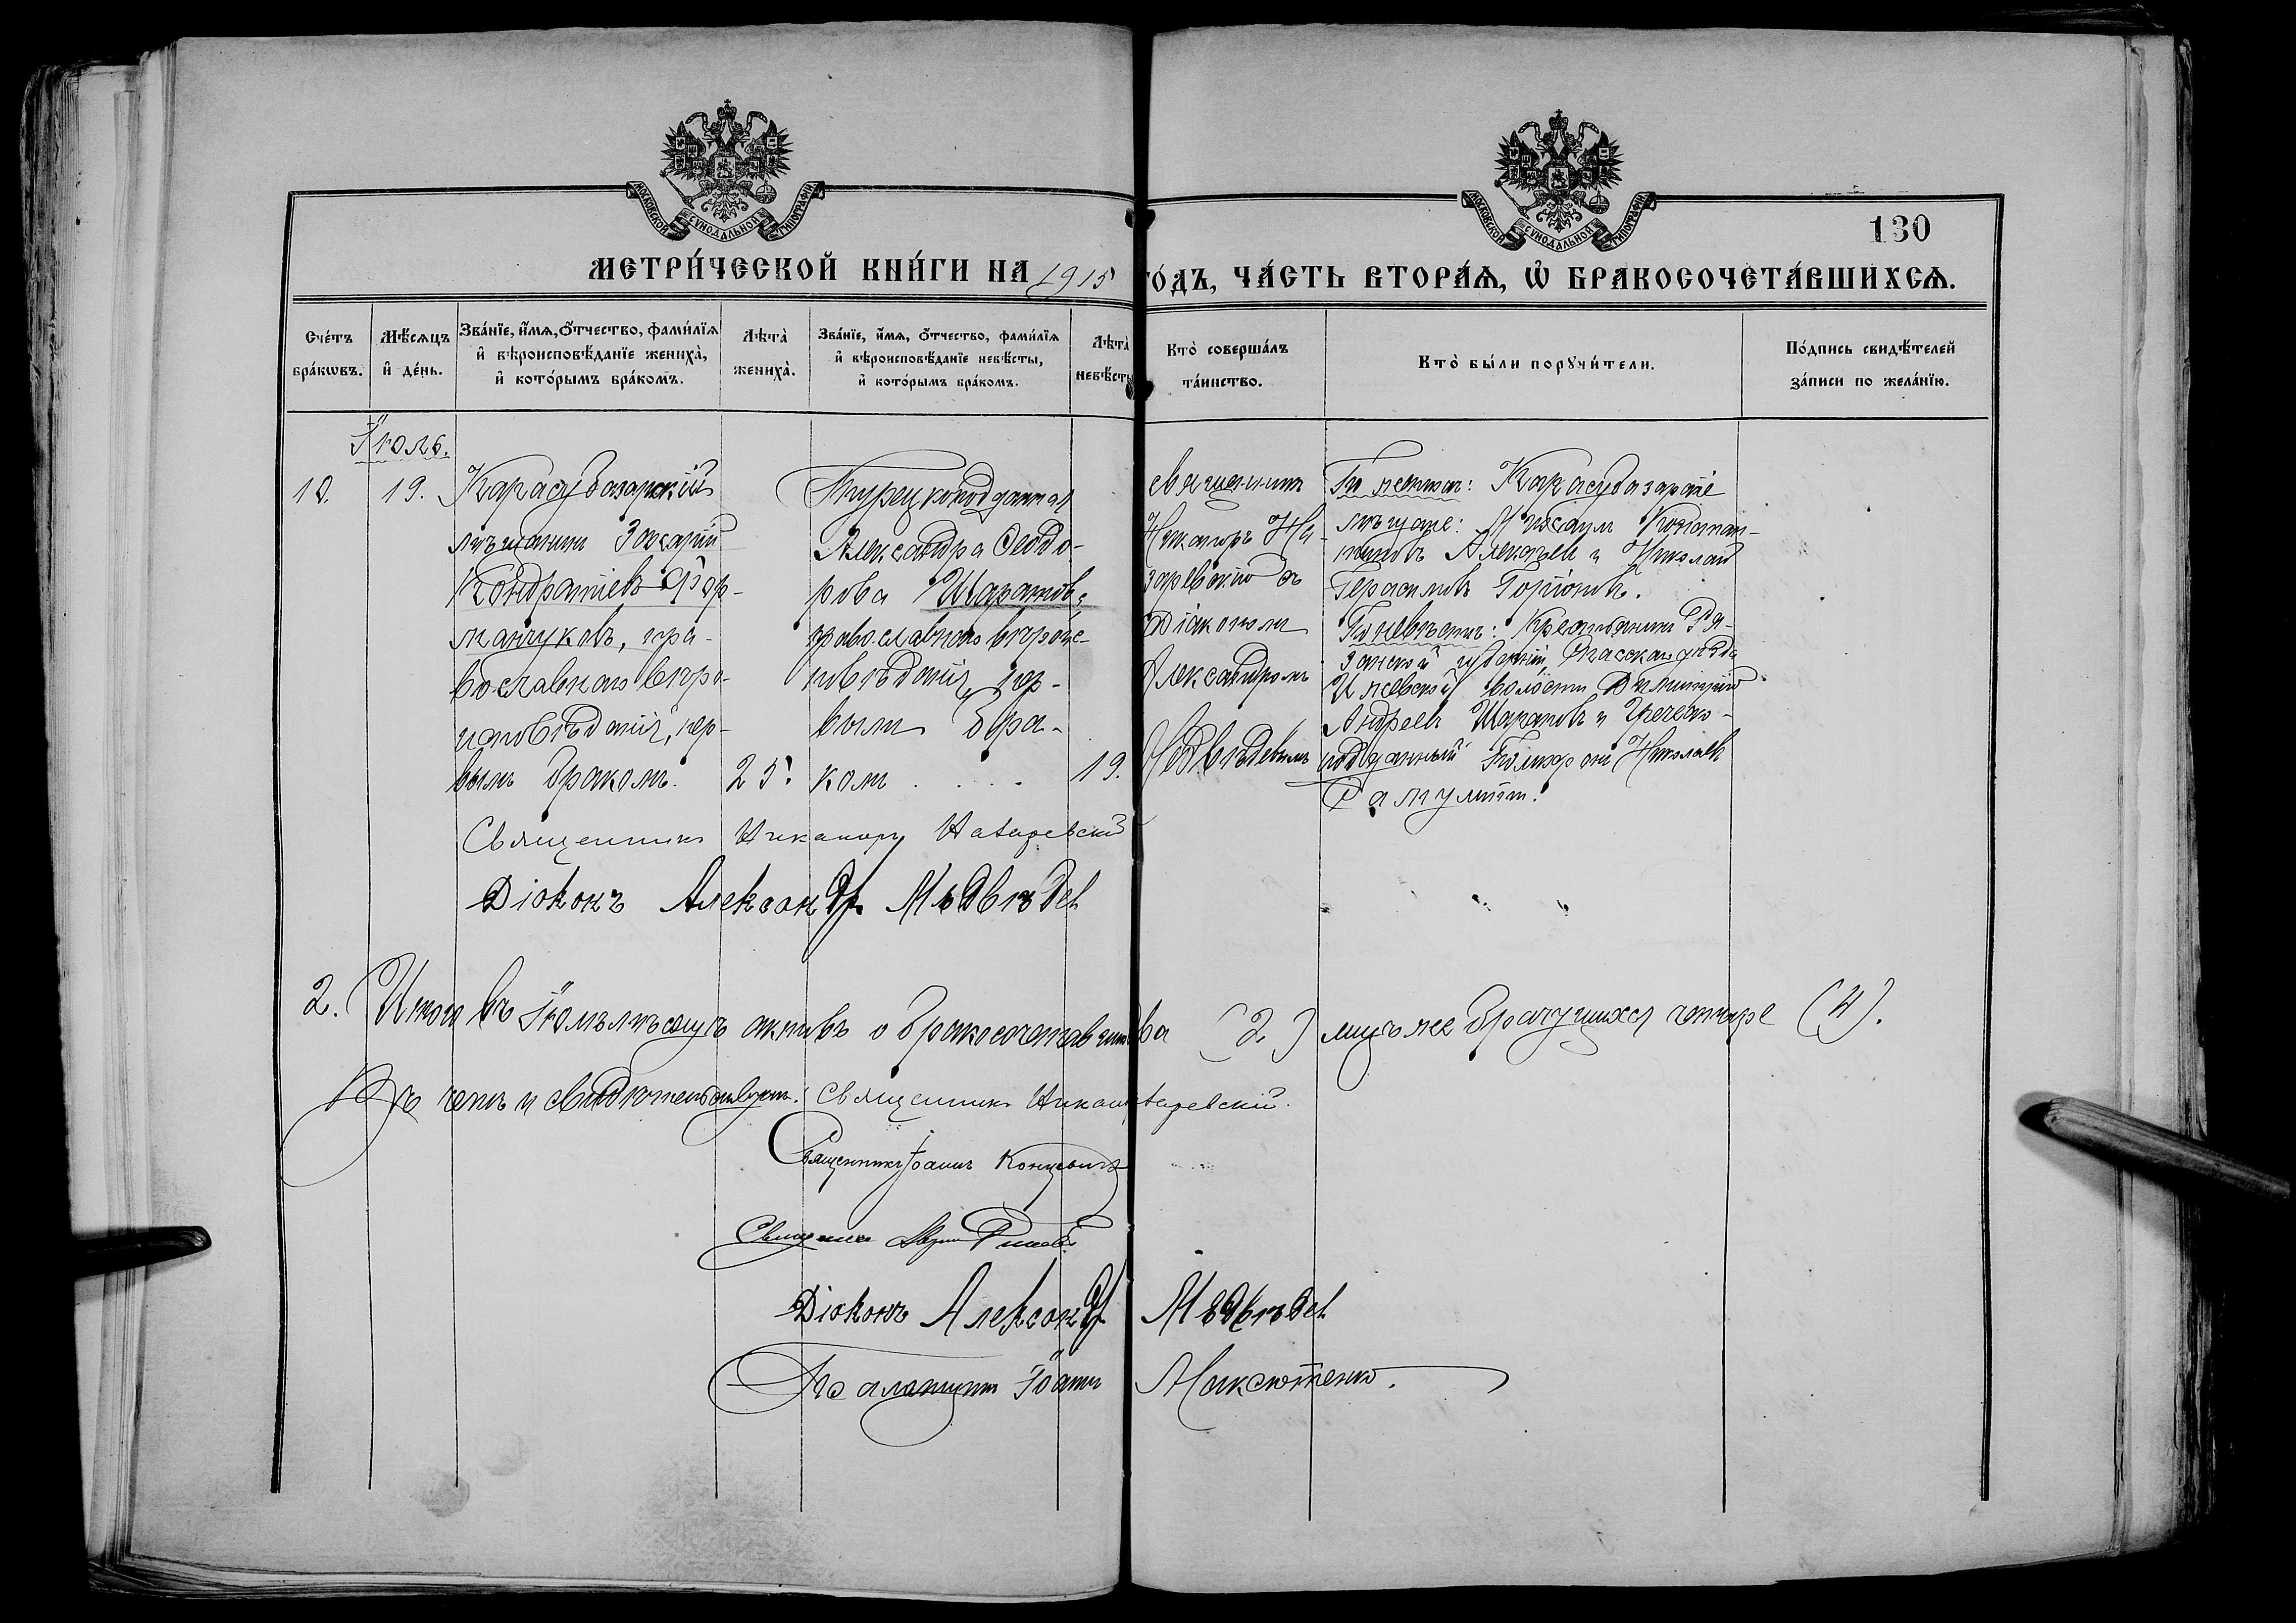 МОСКОВСКОЙ СѴНОДАЛЬНОЙ ТИПОГРАФІИ
МОСКОВСКОЙ СѴНОДАЛЬНОЙ ТИПОГРАФІИ
130
МЕТРИ́ЧЕСКОЙ КНИ́ГИ НА 1915 ГО́ДЪ, ЧА́СТЬ ВТОРА́Я, Ѡ БРАКОСОЧЕТА́ВШИХСЯ.
Сче́тъ бра́кѡвъ.
Мѣ́сяцъ и҆ де́нь.
Зва́нїе, и҆́мя, ѻ҆́тчество, фами́лїя и҆ вѣроисповѣ́данїе жениха̀, и҆ кото́рымъ бра́комъ.
Лѣта̀ жениха̀.
Зва́нїе, и҆́мя, ѻ҆́тчество, фами́лїя и҆ вѣроисповѣ́данїе невѣ́сты, и҆ кото́рымъ бра́комъ.
Лѣта̀ невѣ́сты
Кто̀ соверша́лъ та́инство.
Кто̀ бы́ли порꙋчи́тели.
По́дпись свидѣ́телей за́писи по жела́нїю.
Іюль.
10.
19.
Карасубазарскій
мѣщанинъ Захарій
Кондратіевъ Фур-
манчуковъ, пра-
вославнаго вѣро-
исповѣданія, пер-
вымъ бракомъ.
25.
Турецкоподданная
Александра Ѳеодо-
рова Шарапова
православнаго вѣроис-
повѣданія, пер-
вымъ бра-
комъ
19.
Священникъ
Никаноръ На-
заревскій съ
Діакономъ
Александромъ
Медвѣдевымъ
По женихѣ: Карасубазарскіе
мѣщане: Михаилъ Констан-
тиновъ Алексѣевъ и Николай
Герасимовъ
По невѣстѣ: Крестьянинъ Ря-
занской губерніи, Спасскаго уѣзда
Ижевской волости Димитрій
Андреевъ Шараповъ и Греческо-
подданный Николаевъ
Священникъ Никаноръ Назаревскій
Діаконъ Александръ Медвѣдевъ
2. Итого въ Іюлѣ мѣсяцѣ актовъ о бракосочетавшихся два (2) мужеска брачущихся четыре (4).
Въ чемъ и свидѣтельствуемъ: Священникъ Никаноръ Назаревскій.
Священникъ Іоаннъ Концевичъ
Священникъ
Діаконъ Александръ Медвѣдевъ
Псаломщикъ Іоаннъ Максютенко.